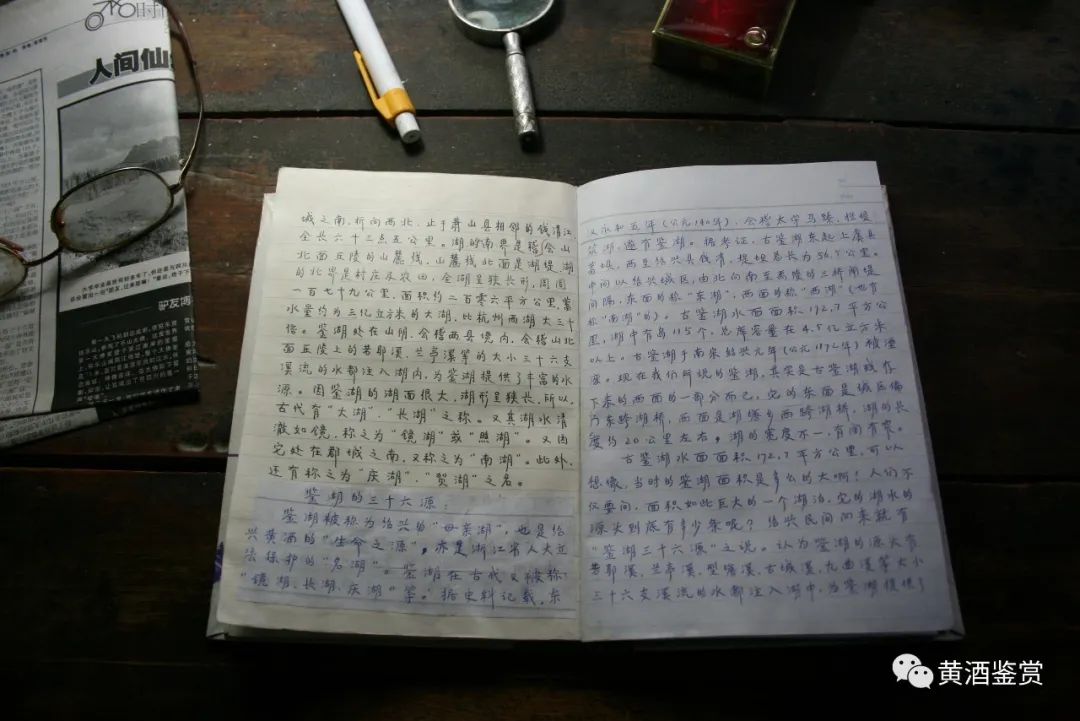 时
人间仙
驴友博
城之南,折向西北,止于萧山县相邻的钱清江
全长六十三点五公里。湖的南界是稽会山
北面丘陵的山麓线,山麓线北面是湖堤,湖
的北界是村庄及农田,全湖呈狭长形,周围
一百七十九公里,面积约二百零六平方公里,蓄
水量约为三亿立方米的大湖,比杭州西湖大三十
倍。鉴湖处在山阴、会稽两县境内,会稽山北
面丘陵上的若耶溪、兰亭溪等的大小三十六支
溪流的水都注入湖内,为鉴湖提供了丰富的水
源。因鉴湖的湖面很大,湖形呈狭长,所以,
古代有“大湖”、“长湖”之称。又其湖水清
澈如镜,称之为“镜湖”或“照湖”。又因
它处在郡城之南,又称之为“南湖”。此外,
还有称之为“庆湖”、“贺湖”之名。
鉴湖的三十六源:
鉴湖被称为绍兴的“母亲湖”,也是绍
兴黄酒的“生命之源”,亦是浙江省人大立
法保护的“名湖”。鉴湖在古代又被称
“镜湖、长湖、庆湖”等。据史料记载,东
汉永和五年(公元140年),会稽太守马臻,拦坝
筑湖,遂有鉴湖。据考证,古鉴湖东起上虞县
蒿坝,西至绍兴县钱清,堤坝总长为56.5公里。
中间以绍兴城区,由北向南至禹陵的三桥闸堤
间隔,东面的称“东湖”,西面的称“西湖”(也有
称“南湖”的)。古鉴湖水面面积172.7平方公
里,湖中有岛115个,总库容量在4.5亿立方米
以上。古鉴湖于南宋绍兴元年(公元1172年)被湮
废。现在我们所说的鉴湖,其实是古鉴湖残存
下来的西面的一部分而已。它的东面是城区偏
门东跨湖桥,西面是湖塘乡西跨湖桥,湖的长
度约20公里左右,湖的宽度不一,有阔有窄。
古鉴湖水面面积172.7平方公里,可以
想像,当时的鉴湖面积是多么的大啊!人们不
仅要问,面积如此巨大的一个湖泊,它的湖水的
源头到底有多少条呢?绍兴民间向来就有
“鉴湖三十六源”之说。认为鉴湖的源头有
若耶溪、兰亭溪、型塘溪、古城溪、九曲溪等大小
三十六支溪流的水都注入湖中,为鉴湖提供了
黄酒鉴赏